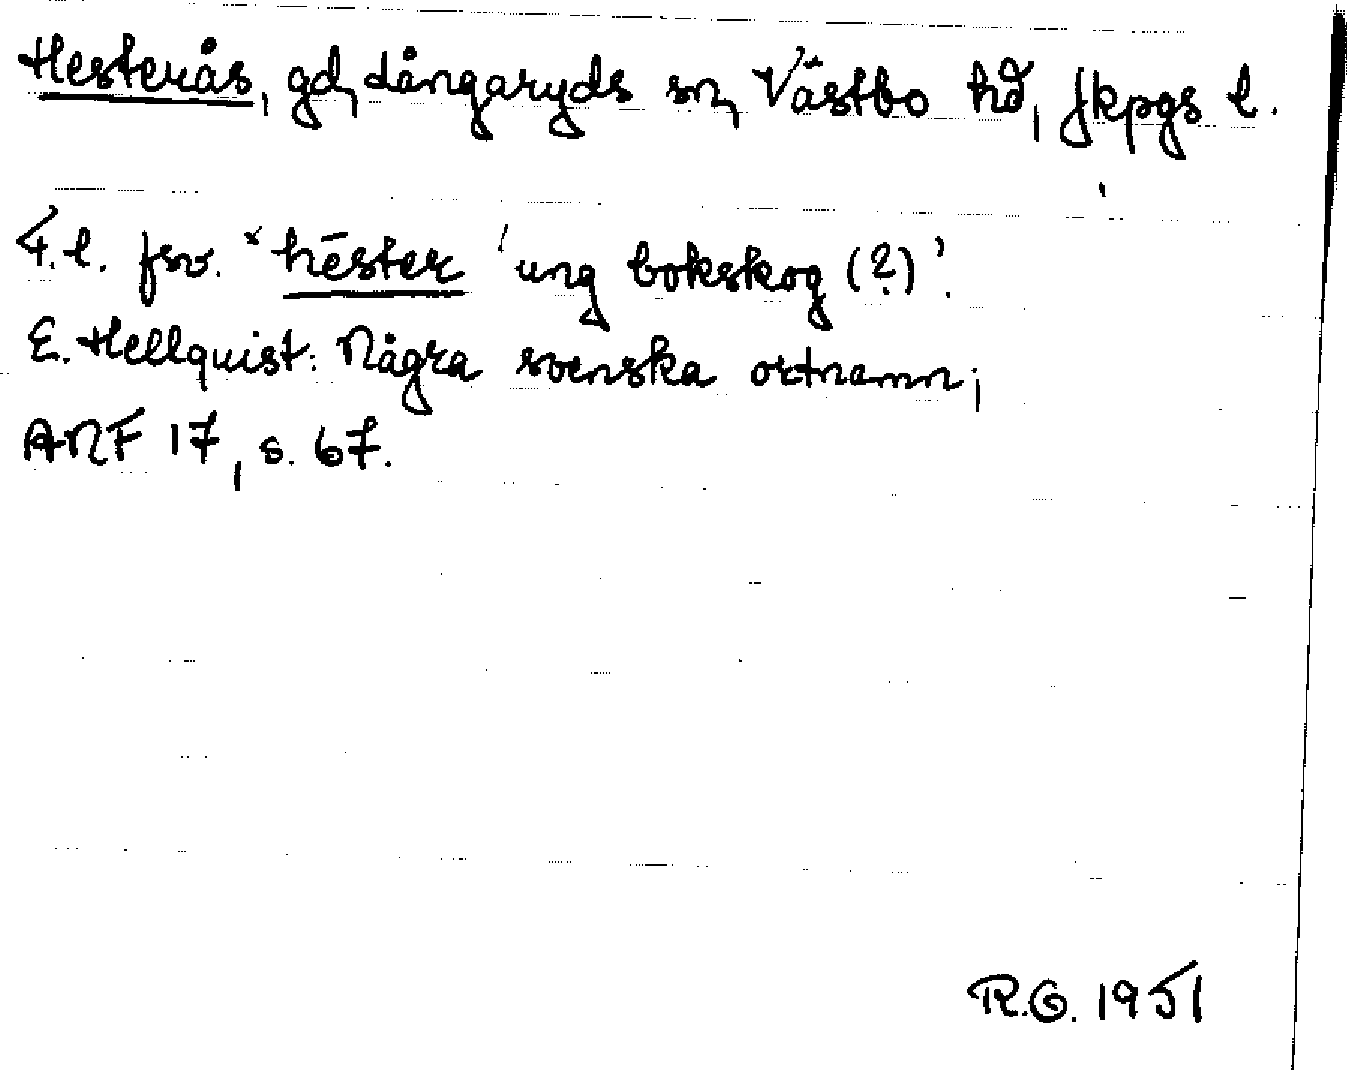 Hesterås, gd, Långaryds sn, Västbo hd, Jkpgs l.
F.l. fsv. *hēster 'ung bokskog (?)'.
E. Hellquist: Några svenska ortnamn;
ANF 17, s. 67.
R.G. 1951